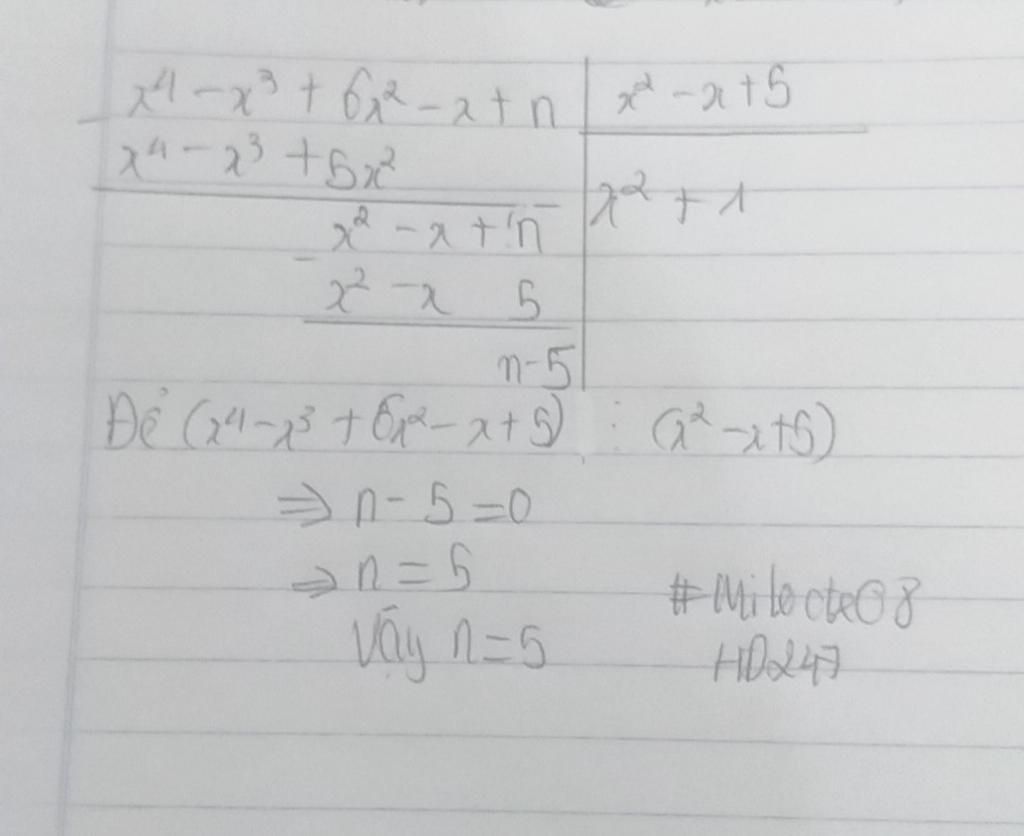 x⁴ - x³ + 6x² - x + n | x² - x + 5
x⁴ - x³ + 5x²
x² + 1
x² - x + n
x² - x 5
n - 5
Để (x⁴ - x³ + 6x² - x + 5) ⋮ (x² - x + 5)
⇒ n - 5 = 0
⇒ n = 5
Vậy n = 5
HD247